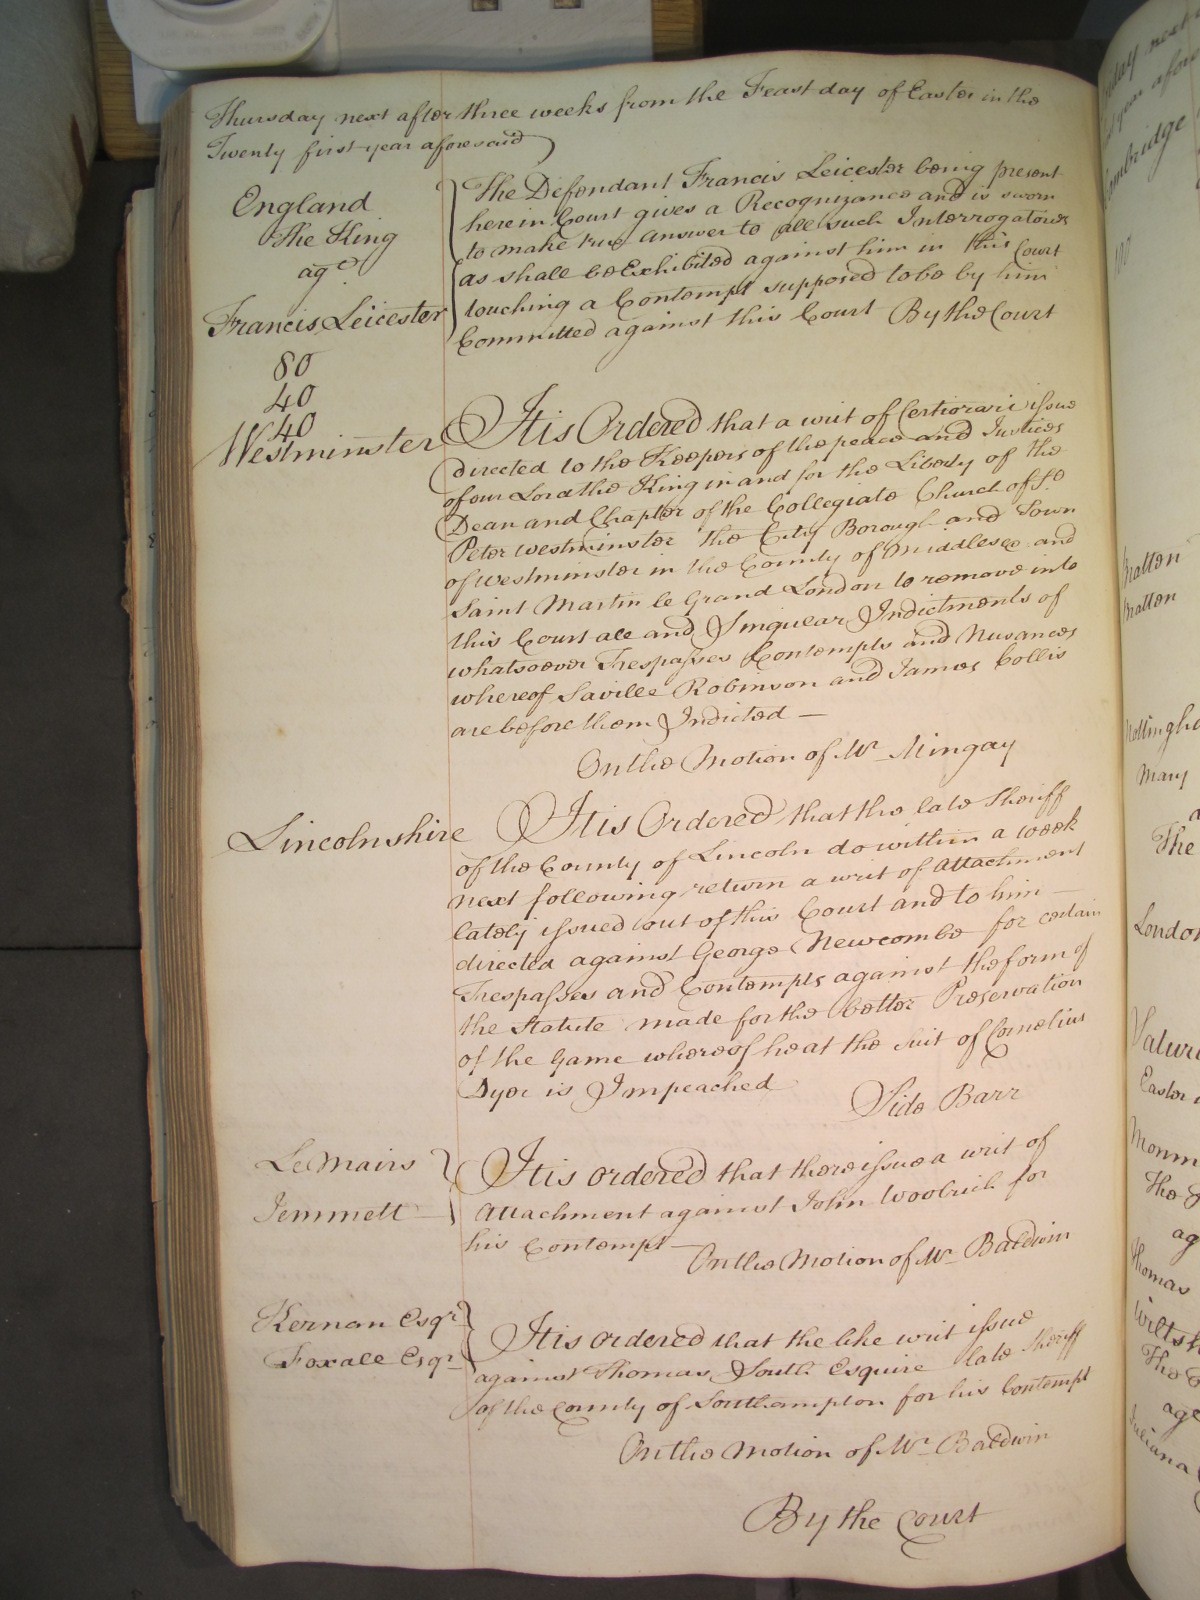 Thursday next after three weeks from the Feast day of Easter in the
Twenty first year aforesaid
England
The King
agt
Francis Leicester
80
40
40
The Defendant Francis Leicester being present
here in Court gives a Recognizance and is sworn
to make true answer to all such Interrogatories
as shall be Exhibited against him in this Court
touching a Contempt supposed to be by him
Committed against this Court By the Court
Westminster
It is Ordered that a writ of Certiorari issue
directed to the Keepers of the peace and Justices
of our Lord the King in and for the Liberty of the
Dean and Chapter of the Collegiate Church of St
Peter Westminster the City Borough and Town
of Westminster in the County of Middlesex and
Saint Martin le Grand London to remove into
this Court all and Singular Indictments of
whatsoever Trespasses Contempts and Nusances
whereof Saville Robinson and James Collis
are before them Indicted —
On the Motion of Mr Mingay
Lincolnshire
It is Ordered that the late Sheriff
of the County of Lincoln do within a week
next following return a writ of Attachment
lately issued out of this Court and to him —
directed against George Newcombe for certain
Trespasses and Contempts against the form of
the Statute made for the better Preservation
of the Game whereof he at the suit of Cornelius
Dyer is Impeached
Side Barr
Le Mairs
Jemmett
It is ordered that there issue a writ of
Attachment against John Woolrich for
his Contempt —
On the Motion of Mr Baldwin
Kernan Esqr
Foxall Esqr
It is ordered that the like writ issue
against Thomas South Esquire late Sheriff
of the County of Southampton for his Contempt
On the Motion of Mr Baldwin
By the Court
Bratton
Bratton
Mary
The
Easter
The
ag
Thomas
The
agt
Juliana